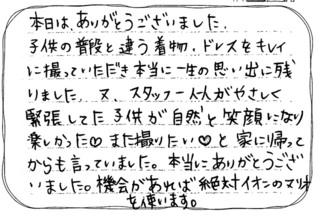 本日は、ありがとうございました。
子供の普段と違う着物、ドレスをキレイ
に撮っていただき本当に一生の思い出に残
りました。又、スタッフ一人一人がやさしく
緊張してた子供が自然と笑顔になり
楽しかった♡また撮りたい♡と家に帰って
からも言っていました。本当にありがとうござ
いました。機会があれば絶対イオンのマリオ
を使います。